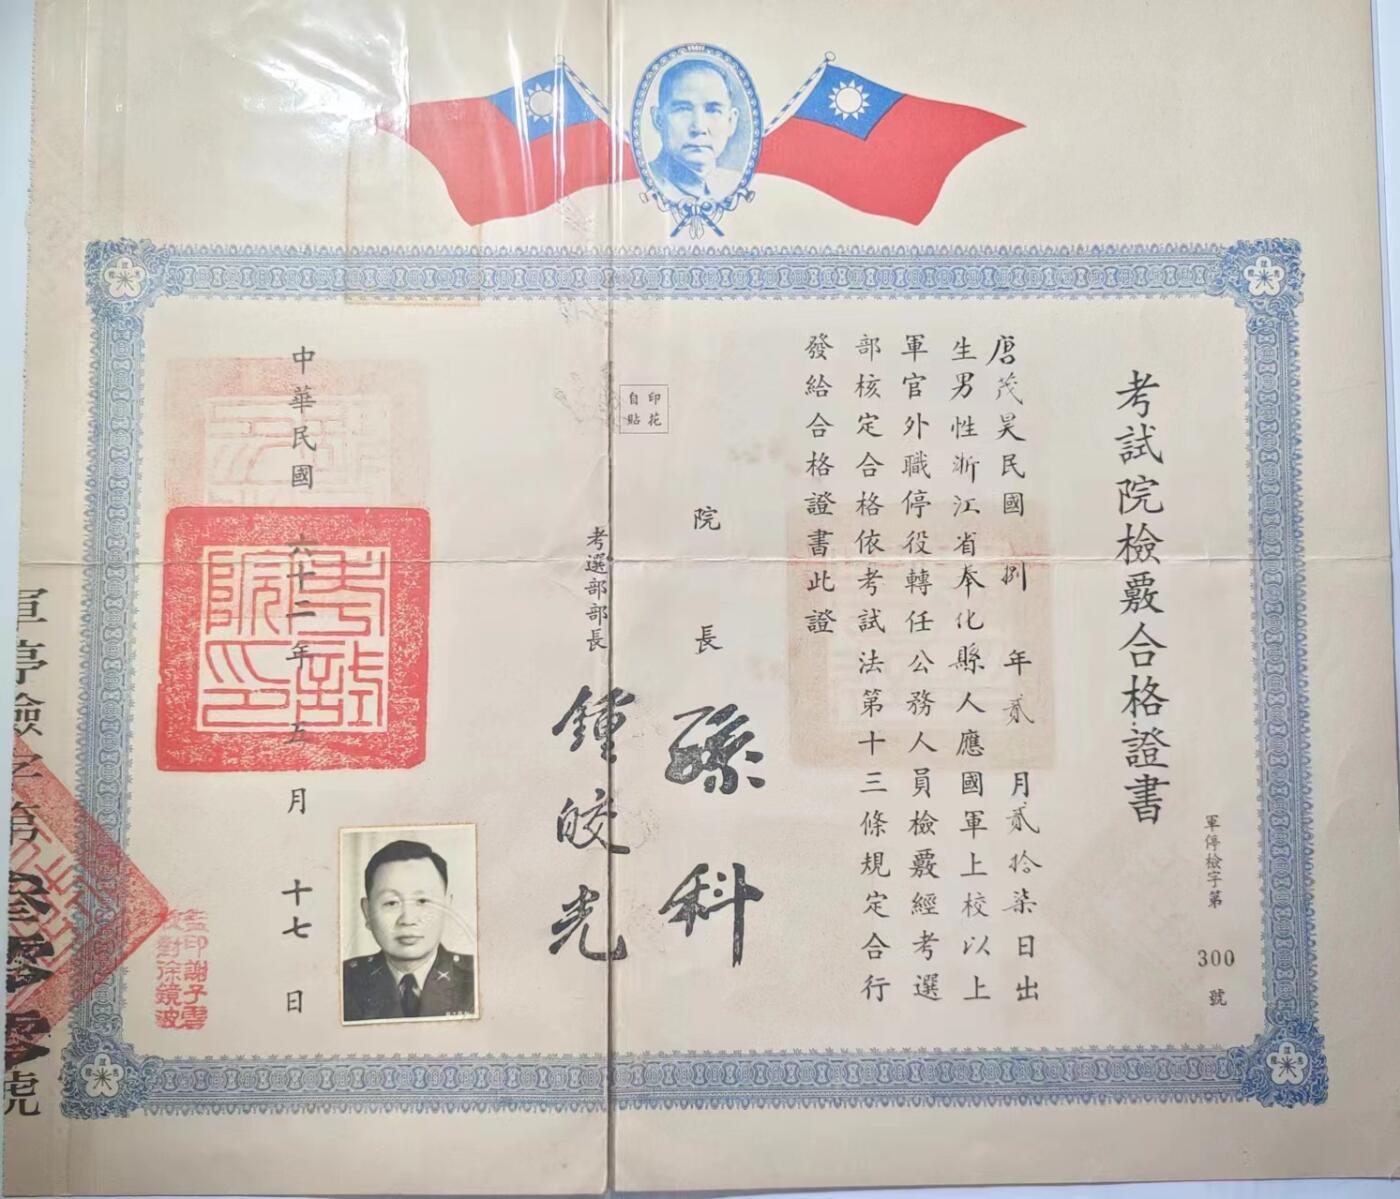 考試院檢覈合格證書
軍停檢字第 300 號
唐茂昊民國捌年貳月貳拾柒日出
生男性浙江省奉化縣人應國軍上校以上
軍官外職停役轉任公務人員檢覈經考選
部核定合格依考試法第十三條規定合行
發給合格證書此證
印花
自貼
院長 孫科
考選部部長 鍾皎光
中華民國六十二年五月十七日
考試院印
監印謝子雲
校對徐鏡波
軍停檢字第叁零零號